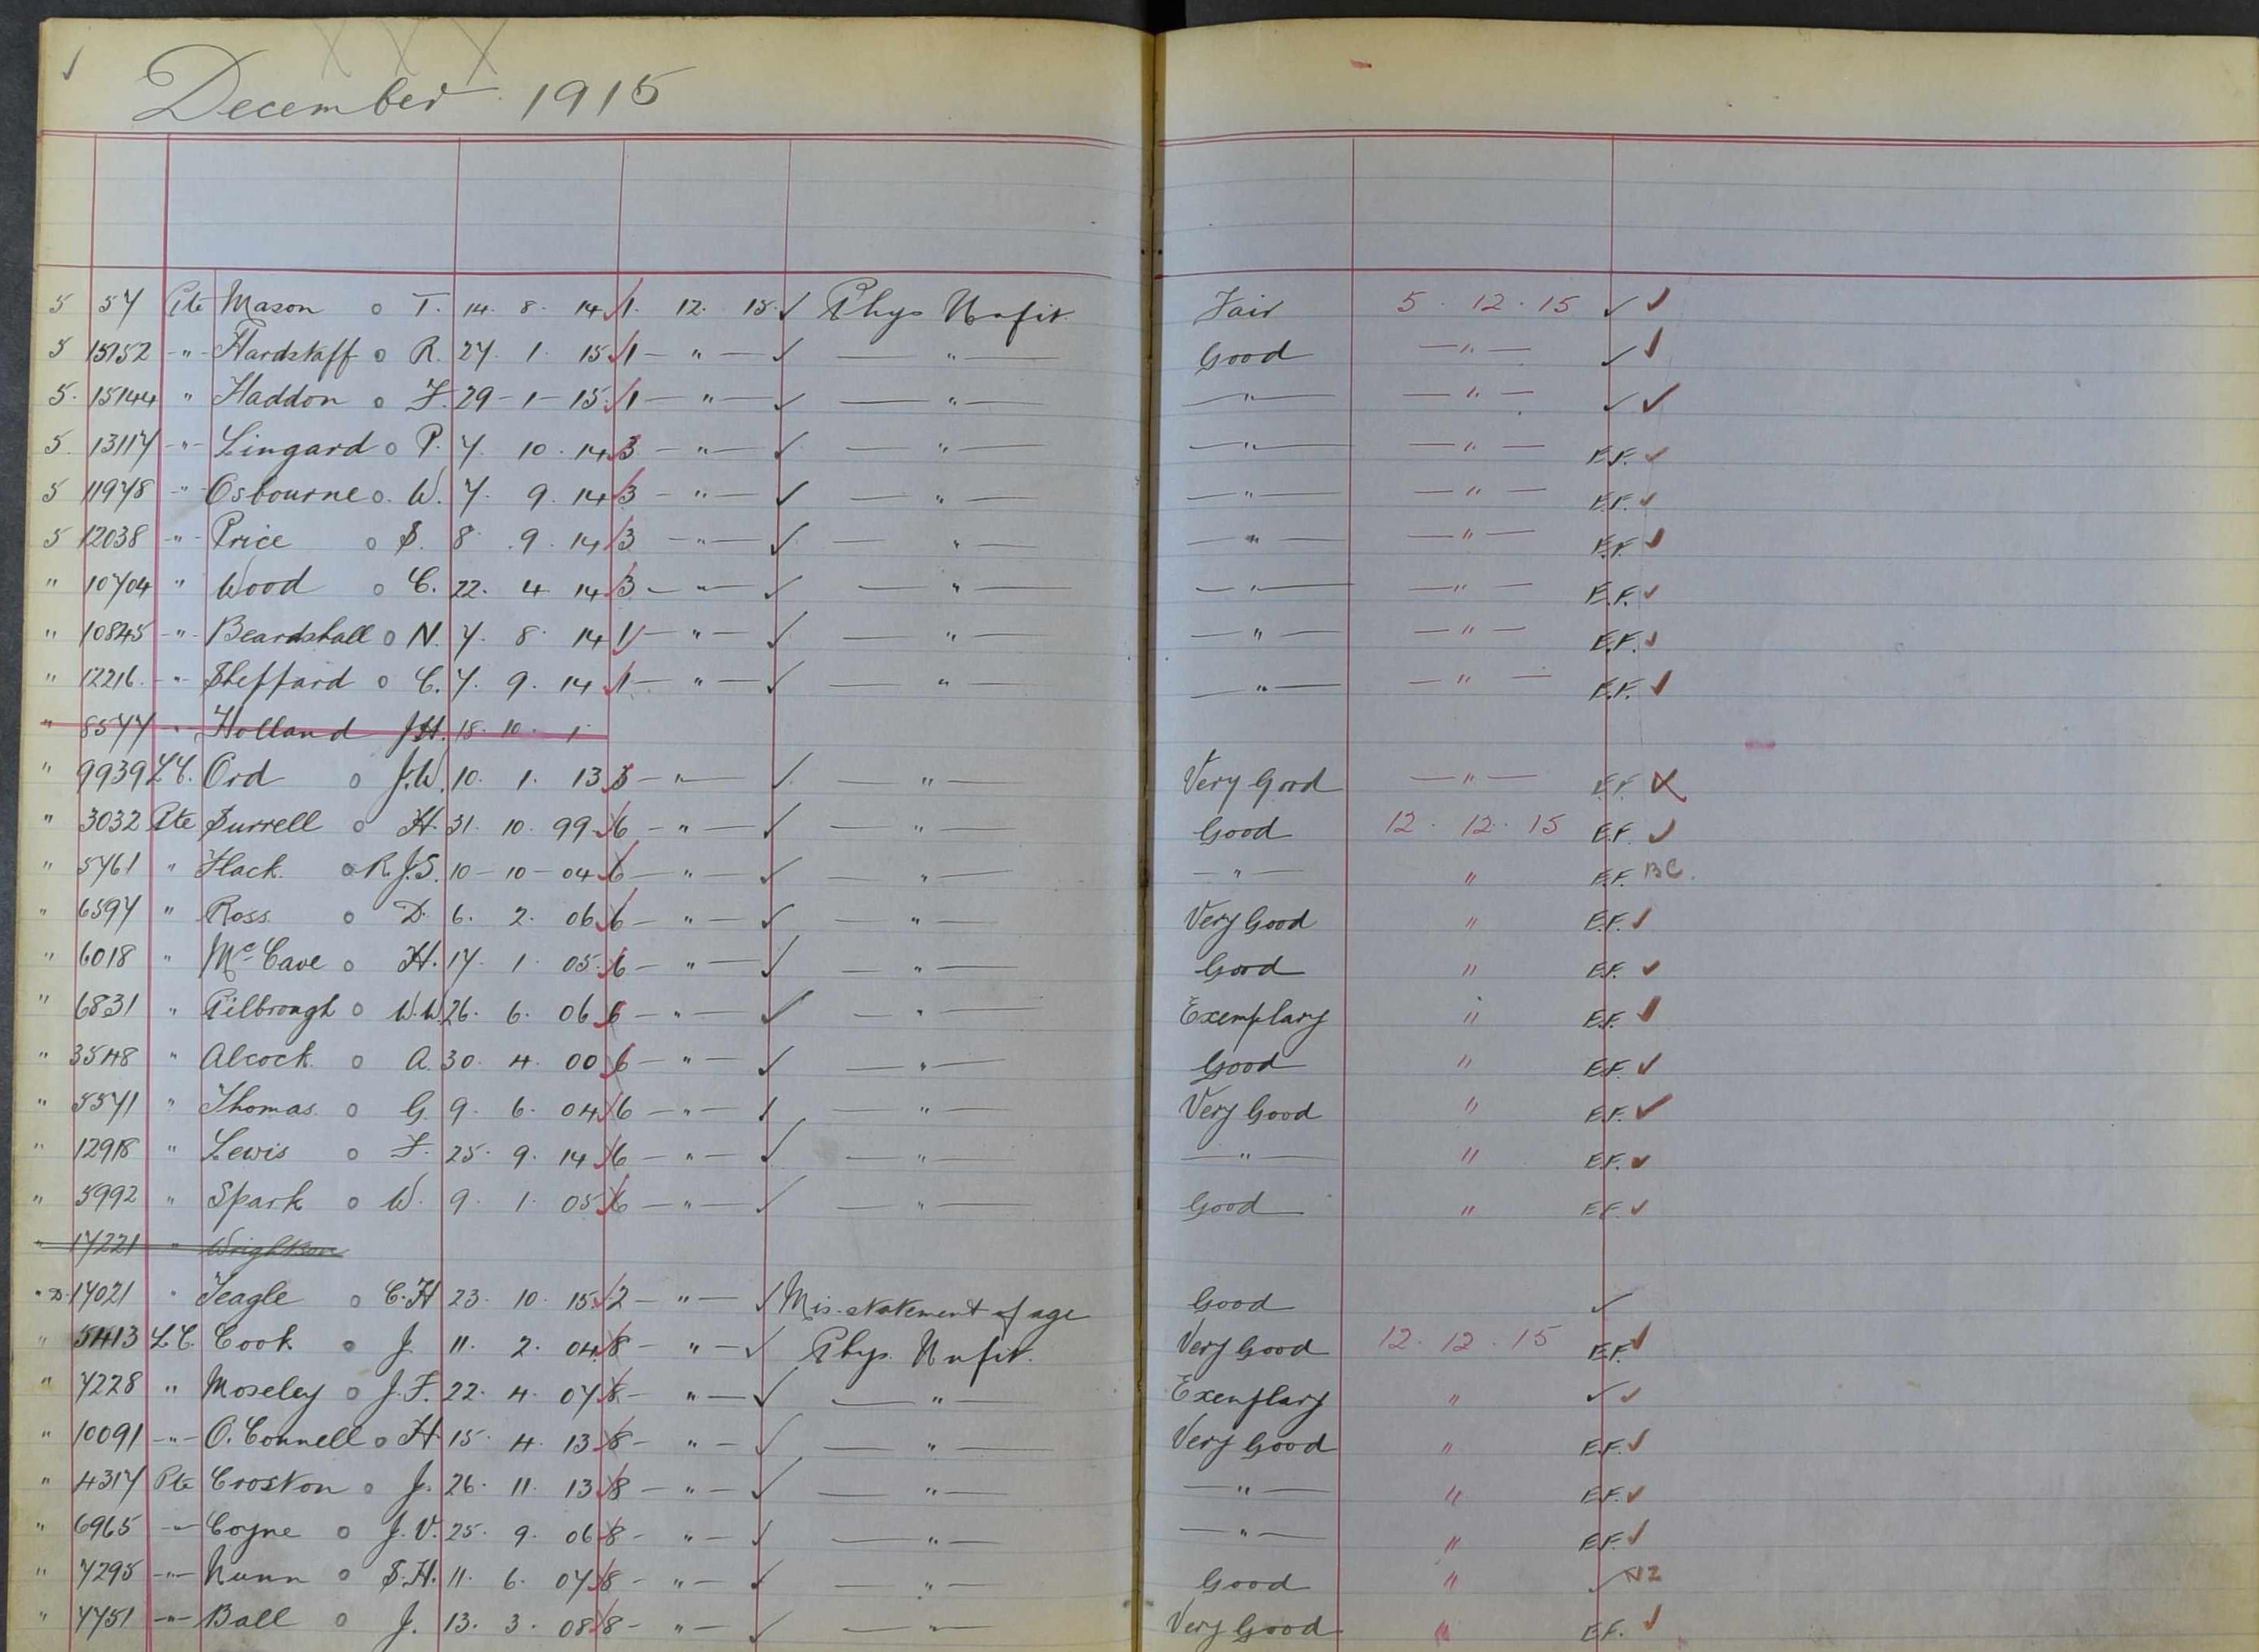 December 1915
5 57 Pte Mason o T. 14. 8. 14 1. 12. 15. Phys Unfit Fair 5. 12. 15
5 15152 -"- Hardstaff o R. 27. 1. 15 1 — " — — " — Good — " —
5. 15144 " Haddon o F. 29 - 1 - 15 1 — " — — " — — " — — " —
5. 13117 -"- Lingard o P. 7. 10. 14 3 — " — — " — — " — — " — E.F.
5 11978 -"- Osbourne o. W. 7. 9. 14 3 — " — — " — — " — — " — E.F.
5 12038 -"- Price o S. 8. 9. 14 3 — " — — " — — " — — " — E.F.
" 10704 " Wood o C. 22. 4. 14 3 — " — — " — — " — — " — E.F.
" 10845 -"- Beardshall o N. 7. 8. 14 1 — " — — " — — " — — " — E.F.
" 12216 -"- Sheffard o C. 7. 9. 14 1 — " — — " — — " — — " — E.F.
" 8577 " Holland J.H. 18. 10. 1
" 9939 L.C. Ord o J.W. 10. 1. 13 3 — " — — " — Very Good — " — E.F.
" 3032 Pte Surrell o H. 31. 10. 99 6 — " — — " — Good 12. 12. 15 E.F.
" 5761 " Flack. o R.J.S. 10 - 10 - 04 6 — " — — " — — " — " E.F. BC.
" 6597 " Ross o D. 6. 2. 06 6 — " — — " — Very Good " E.F.
" 6018 " McCave o H. 17. 1. 05. 6 — " — — " — Good " E.F.
" 6831 " Pilbrough o W.W. 26. 6. 06 6 — " — — " — Exemplary " E.F.
" 3548 " Alcock o A. 30. 4. 00 6 — " — — " — Good " E.F.
" 5571 " Thomas o G. 9. 6. 04 6 — " — — " — Very Good " E.F.
" 12918 " Lewis o F. 25. 9. 14 6 — " — — " — — " — " E.F.
" 5992 " Spark o W. 9. 1. 05 6 — " — — " — Good " E.F.
" 17221 " Wrightson
" D. 17021 " Teagle o C.H 23. 10. 15. 2 — " — Mis-statement of age Good
" 5413 L.C. Cook o J. 11. 2. 04 8 — " — Phys. Unfit. Very Good 12. 12. 15 E.F.
" 7228 " Moseley o J.F. 22. 4. 07 8 — " — — " — Exemplary "
" 10091 -"- O.Connell o H 15. 4. 13 8 — " — — " — Very Good " E.F.
" 4317 Pte Croston o J. 26. 11. 13 8 — " — — " — — " — " E.F.
" 6965 -"- Coyne o J.V. 25. 9. 06 8 — " — — " — — " — " E.F.
" 7295 -"- Nunn o S.H. 11. 6. 07 8 — " — — " — Good " NZ
" 7751 -"- Ball o J. 13. 3. 08 8 — " — — " — Very Good " E.F.